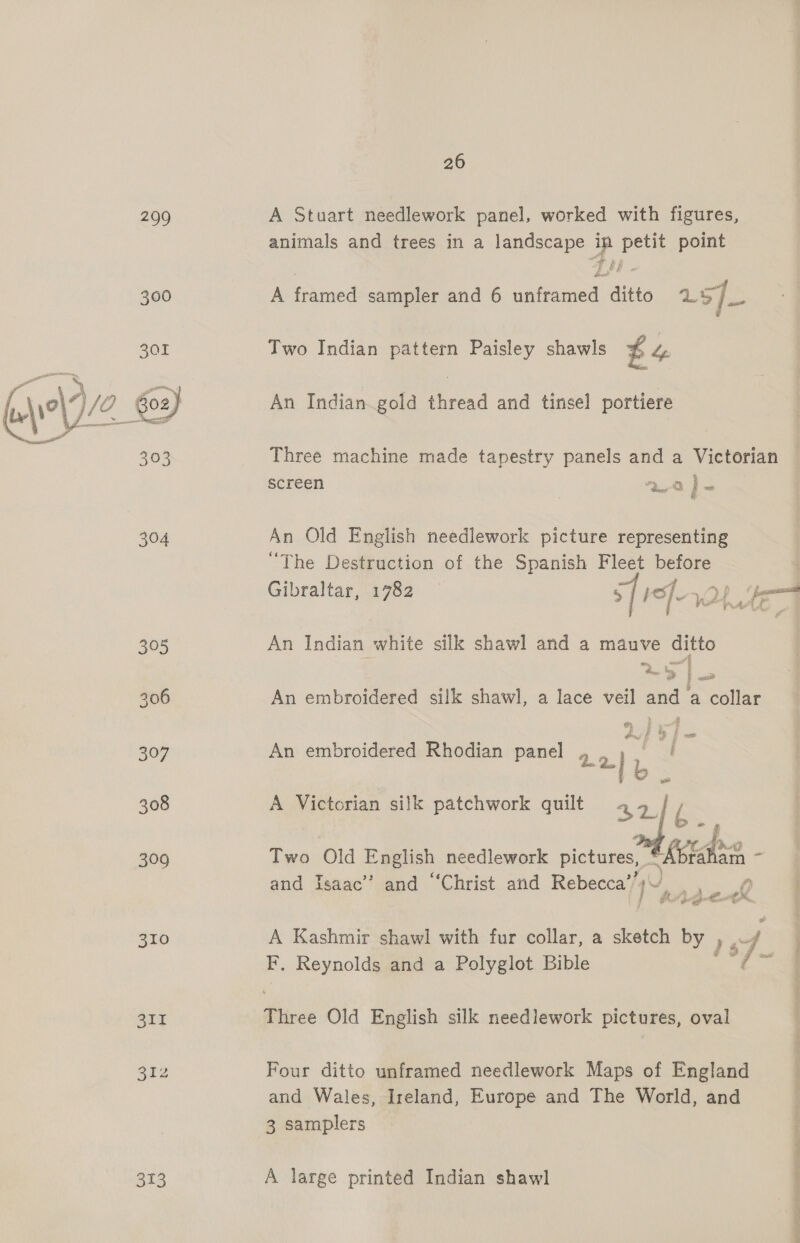 26
299 A Stuart needlework panel, worked with figures,
animals and trees in a landscape in petit point
300 A framed sampler and 6 unframed ditto 25/-
301 Two Indian pattern Paisley shawls £4
302 An Indian gold thread and tinsel portiere
303 Three machine made tapestry panels and a Victorian
screen
304 An Old English needlework picture representing
“The Destruction of the Spanish Fleet before
Gibraltar, 1782
305 An Indian white silk shawl and a mauve ditto
25/-
306 An embroidered silk shawl, a lace veil and a collar
307 An embroidered Rhodian panel 22/6
308 A Victorian silk patchwork quilt 32/6
309 Two Old English needlework pictures, “Abraham
and Isaac” and “Christ and Rebecca”
310 A Kashmir shawl with fur collar, a sketch by
F. Reynolds and a Polyglot Bible
311 Three Old English silk needlework pictures, oval
312 Four ditto unframed needlework Maps of England
and Wales, Ireland, Europe and The World, and
3 samplers
313 A large printed Indian shawl